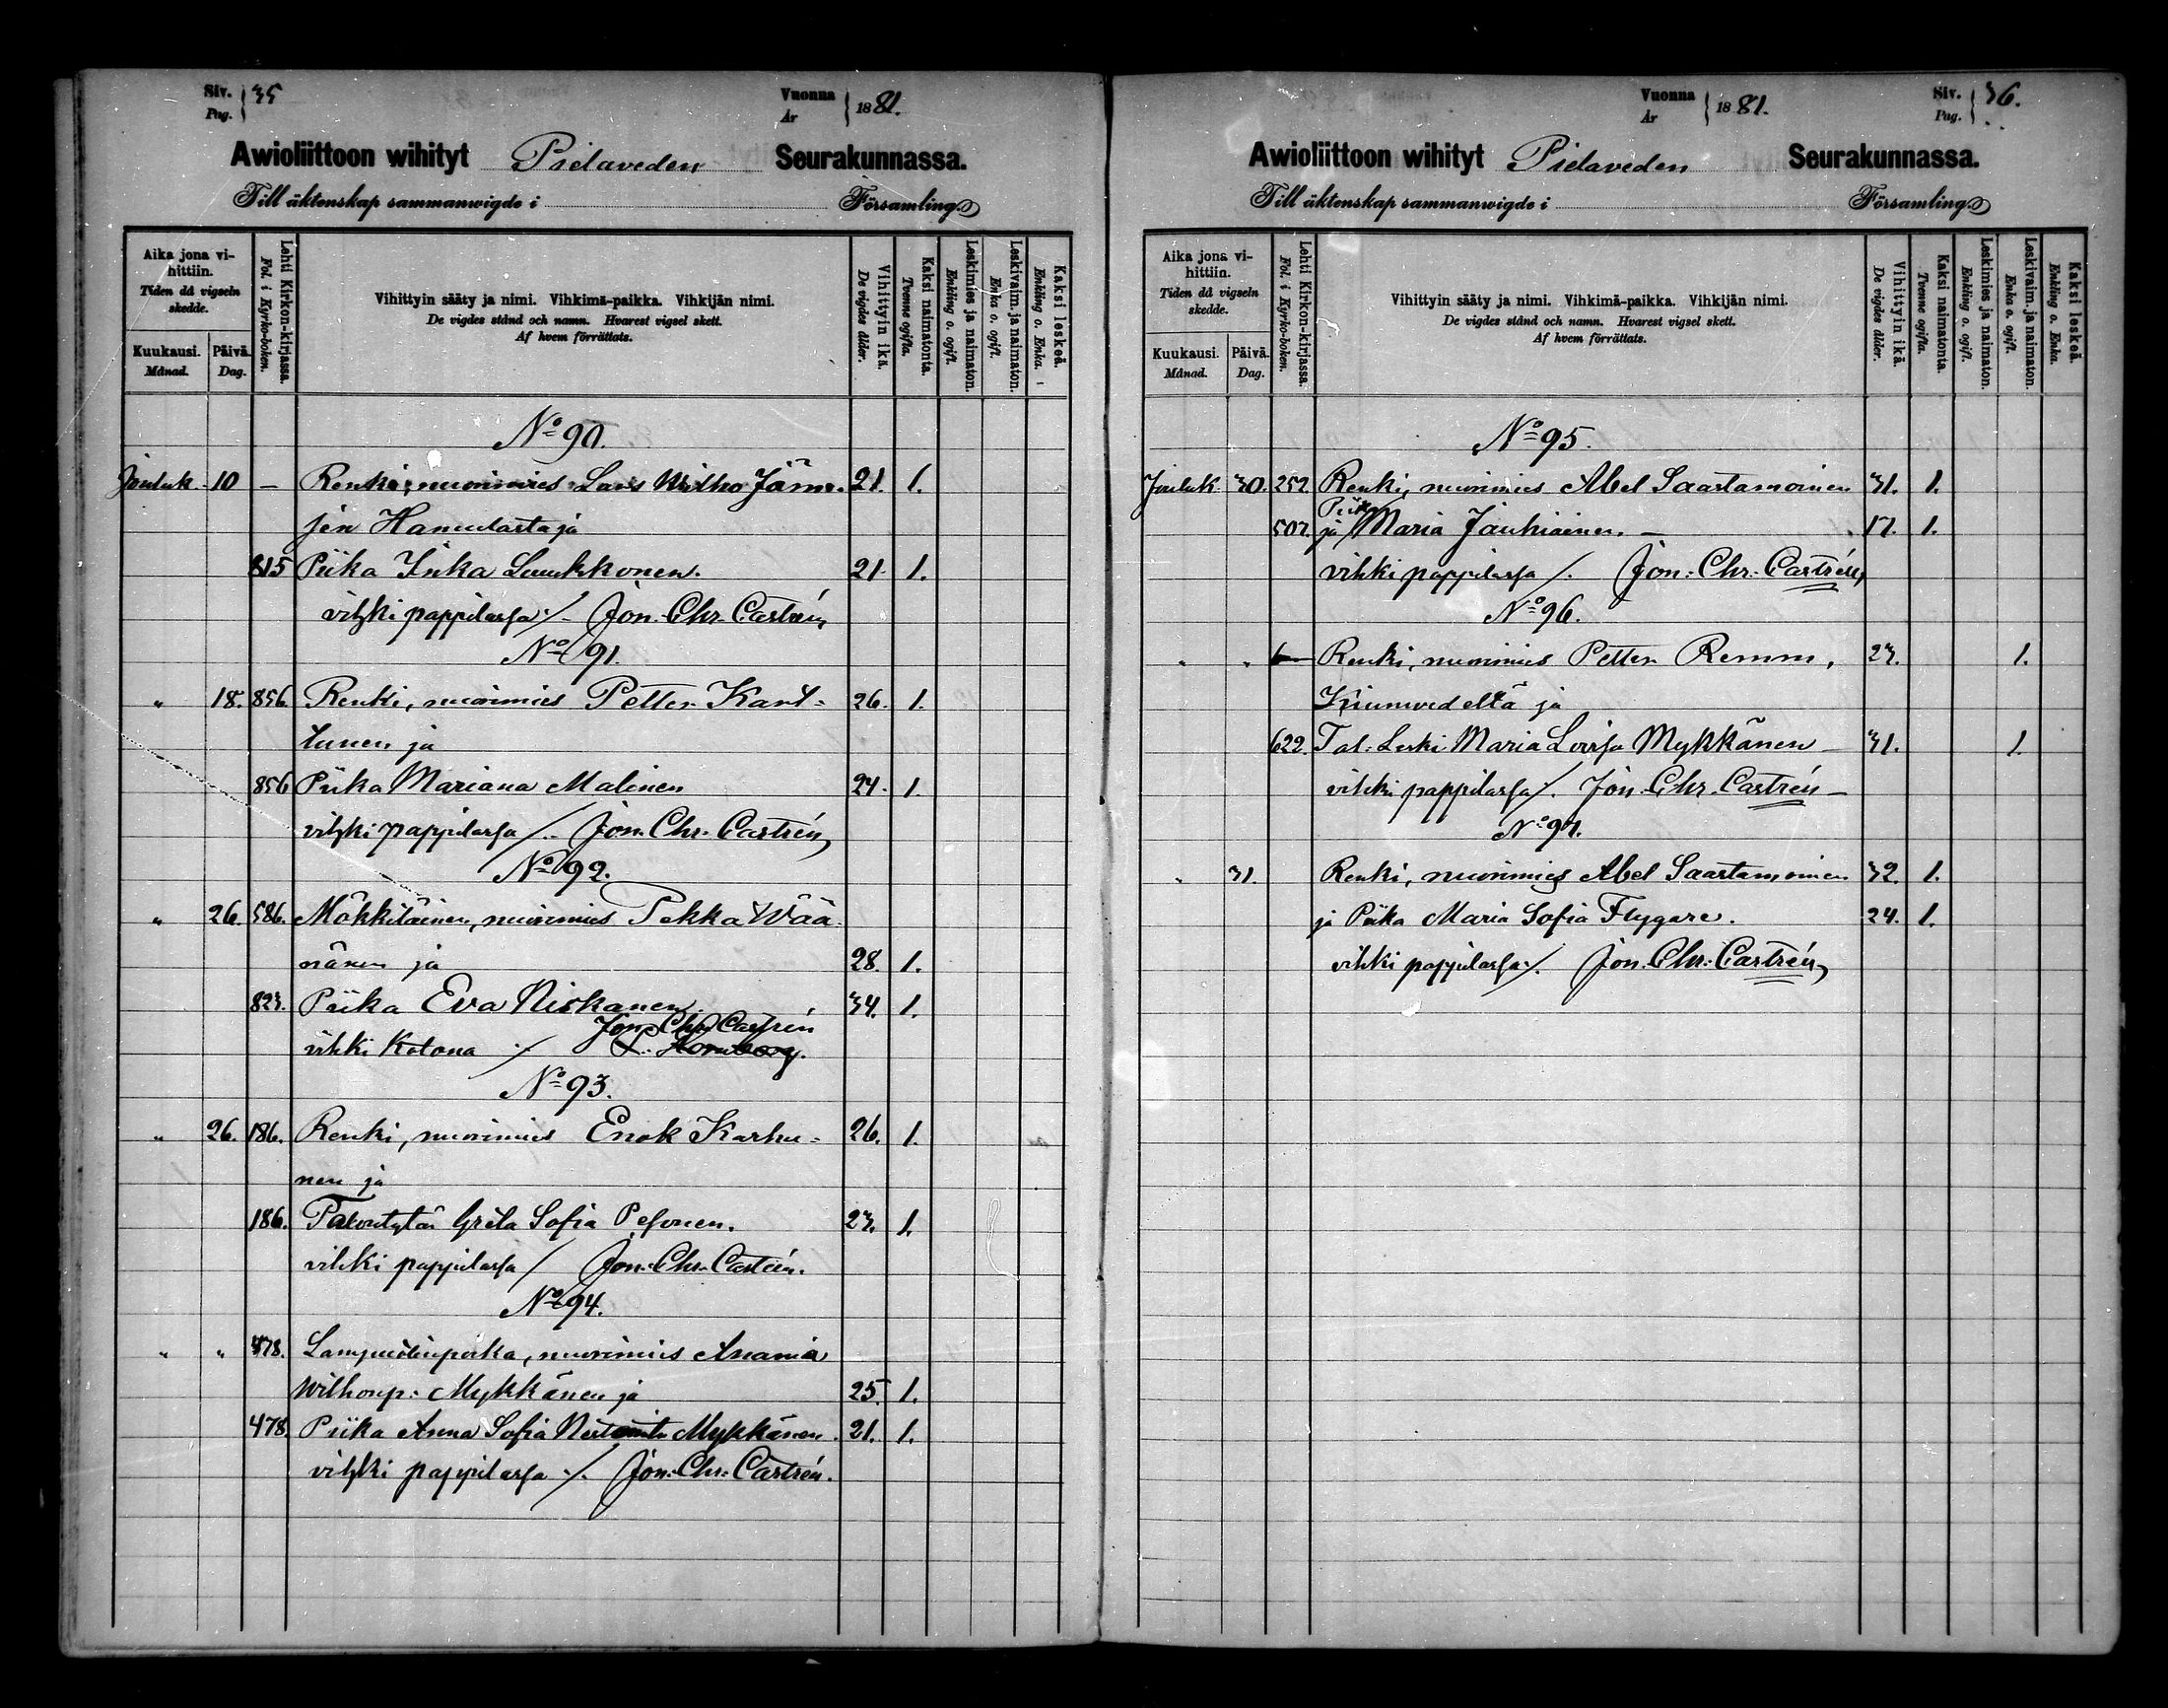 Siv. Pag. 35
Vuonna År 1881.
Awioliittoon wihityt Pielaveden Seurakunnassa.
Till äktenskap sammanwigde i Församling
Aika jona vihittiin.
Tiden då vigseln skedde.
Kuukausi. Månad.
Päivä. Dag.
Lehti Kirkon-kirjassa.
Fol. i Kyrko-boken.
Vihittyin sääty ja nimi. Vihkimä-paikka. Vihkijän nimi.
De vigdes stånd och namn. Hvarest vigsel skett.
Af hvem förrättats.
Vihittyin ikä.
De vigdes ålder.
Kaksi naimatonta.
Tvenne ogifta.
Leskimies ja naimaton.
Enkling o. ogift.
Leskivaim. ja naimaton.
Enka o. ogift.
Kaksi leskeä.
Enkling o. Enka.
No 90.
Jouluk. 10 — Renki, nuorimies Lars Wilho Jämsjen
Hamulasta ja 21. 1.
815 Piika Inka Laukkonen. 21. 1.
vihki pappilassa ./. Jon. Chr. Castrén
No 91.
" 18. 856. Renki, nuorimies Petter Kart- 26. 1.
tunen ja
856 Piika Mariana Malinen 24. 1.
vihki pappilassa ./. Jon. Chr. Castrén
No 92.
" 26. 586. Mökkiläinen, nuorimies Pekka Wää-
nänen ja 28. 1.
823. Piika Eva Niskanen 34. 1.
Jon. Chr. Castrén
vihki Kotona ./.
No 93.
" 26. 186. Renki, nuorimies Enok Karhu- 26. 1.
nen ja
186. Talontytär Greta Sofia Pesonen. 23. 1.
vihki pappilassa / Jon. Chr. Castrén.
No 94.
" " 478. Lampuotinpoika, nuorimies Anania
Wilhonp: Mykkänen ja 25. 1.
478. Piika Anna Sofia Mykkänen. 21. 1.
vihki pappilassa ./. Jon: Chr: Castrén.
Vuonna År 1881.
Siv. Pag. 36.
Awioliittoon wihityt Pielaveden Seurakunnassa.
Till äktenskap sammanwigde i Församling
Aika jona vihittiin.
Tiden då vigseln skedde.
Kuukausi. Månad.
Päivä. Dag.
Lehti Kirkon-kirjassa.
Fol. i Kyrko-boken.
Vihittyin sääty ja nimi. Vihkimä-paikka. Vihkijän nimi.
De vigdes stånd och namn. Hvarest vigsel skett.
Af hvem förrättats.
Vihittyin ikä.
De vigdes ålder.
Kaksi naimatonta.
Tvenne ogifta.
Leskimies ja naimaton.
Enkling o. ogift.
Leskivaim. ja naimaton.
Enka o. ogift.
Kaksi leskeä.
Enkling o. Enka.
No 95.
Jouluk 30. 252. Renki, nuorimies Abel Saastamoinen 31. 1.
507. ja Piika Maria Jauhiainen. — 17. 1.
vihki pappilassa /. Jon: Chr. Castrén,
No 96.
" " Renki, nuorimies Petter Remm, 23. 1.
Kiuruvedeltä ja
622. Tal: Leski Maria Loviisa Mykkänen — 31. 1.
vihki pappilassa /. Jon. Chr. Castrén —
No 97.
" 31. Renki, nuorimies Abel Saastamoinen 32. 1.
ja Piika Maria Sofia Flygare. 24. 1.
vihki pappilassa ./. Jon. Chr: Castrén,